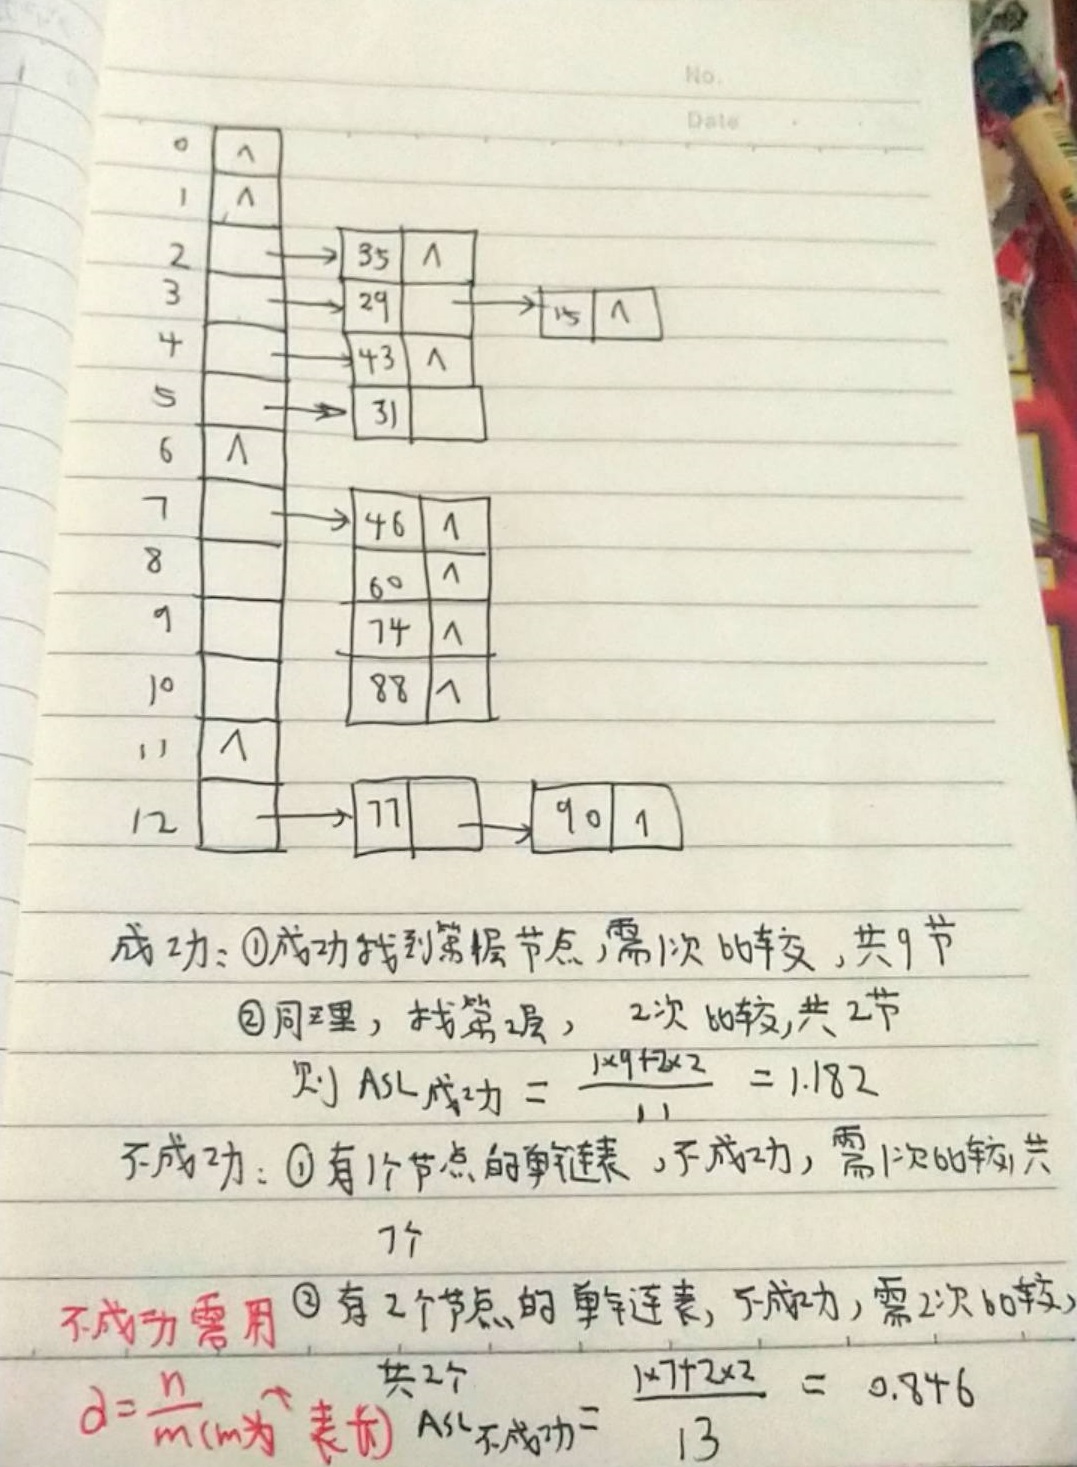 No.
Date
0 ∧
1 ∧
2 35 ∧
3 29 15 ∧
4 43 ∧
5 31
6 ∧
7 46 ∧
8 60 ∧
9 74 ∧
10 88 ∧
11 ∧
12 77 90 ∧
成功：①成功找到第1层节点，需1次比较，共9节
②同理，找第2层，2次比较，共2节
则 ASL成功 = (1×9+2×2)/11 = 1.182
不成功：①有1个节点的单链表，不成功，需1次比较，共
7个
②有2个节点的单链表，不成功，需2次比较，
共2个
ASL不成功 = (1×7+2×2)/13 = 0.846
不成功需用
α = n/m (m为表长)